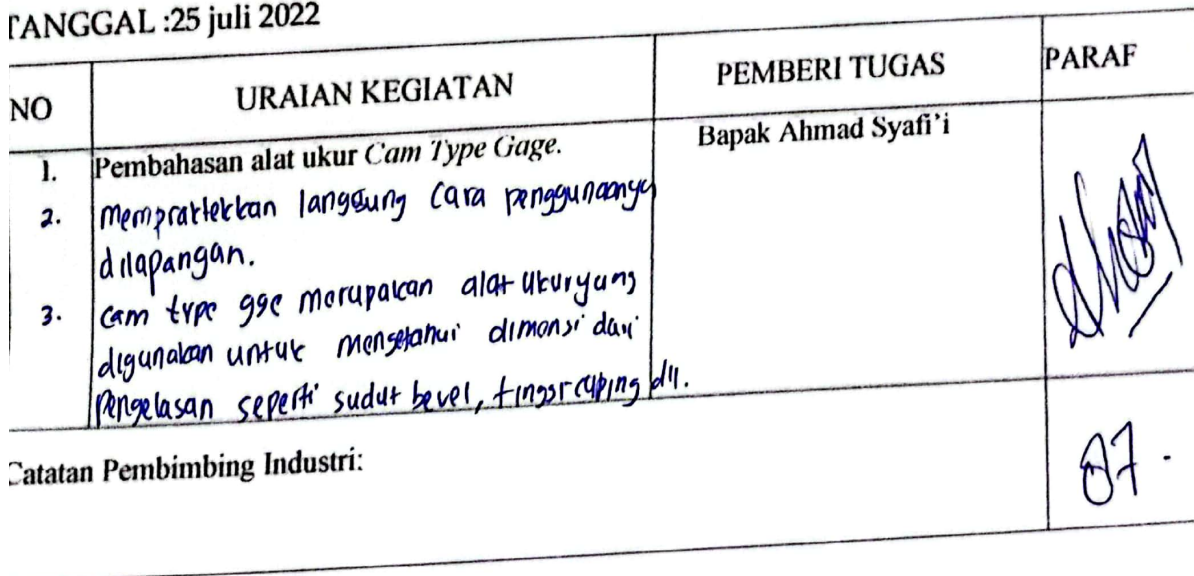 TANGGAL :25 juli 2022
NO URAIAN KEGIATAN PEMBERI TUGAS PARAF
1. Pembahasan alat ukur Cam Type Gage. Bapak Ahmad Syafi'i
2. Mempraktekkan langsung Cara penggunaanya
dilapangan.
3. Cam type gge merupakan alat ukur yang
digunakan untuk mengetahui dimonsi dari
Pengelasan seperti sudut bevel, tinggi caping dll.
Catatan Pembimbing Industri:
87.